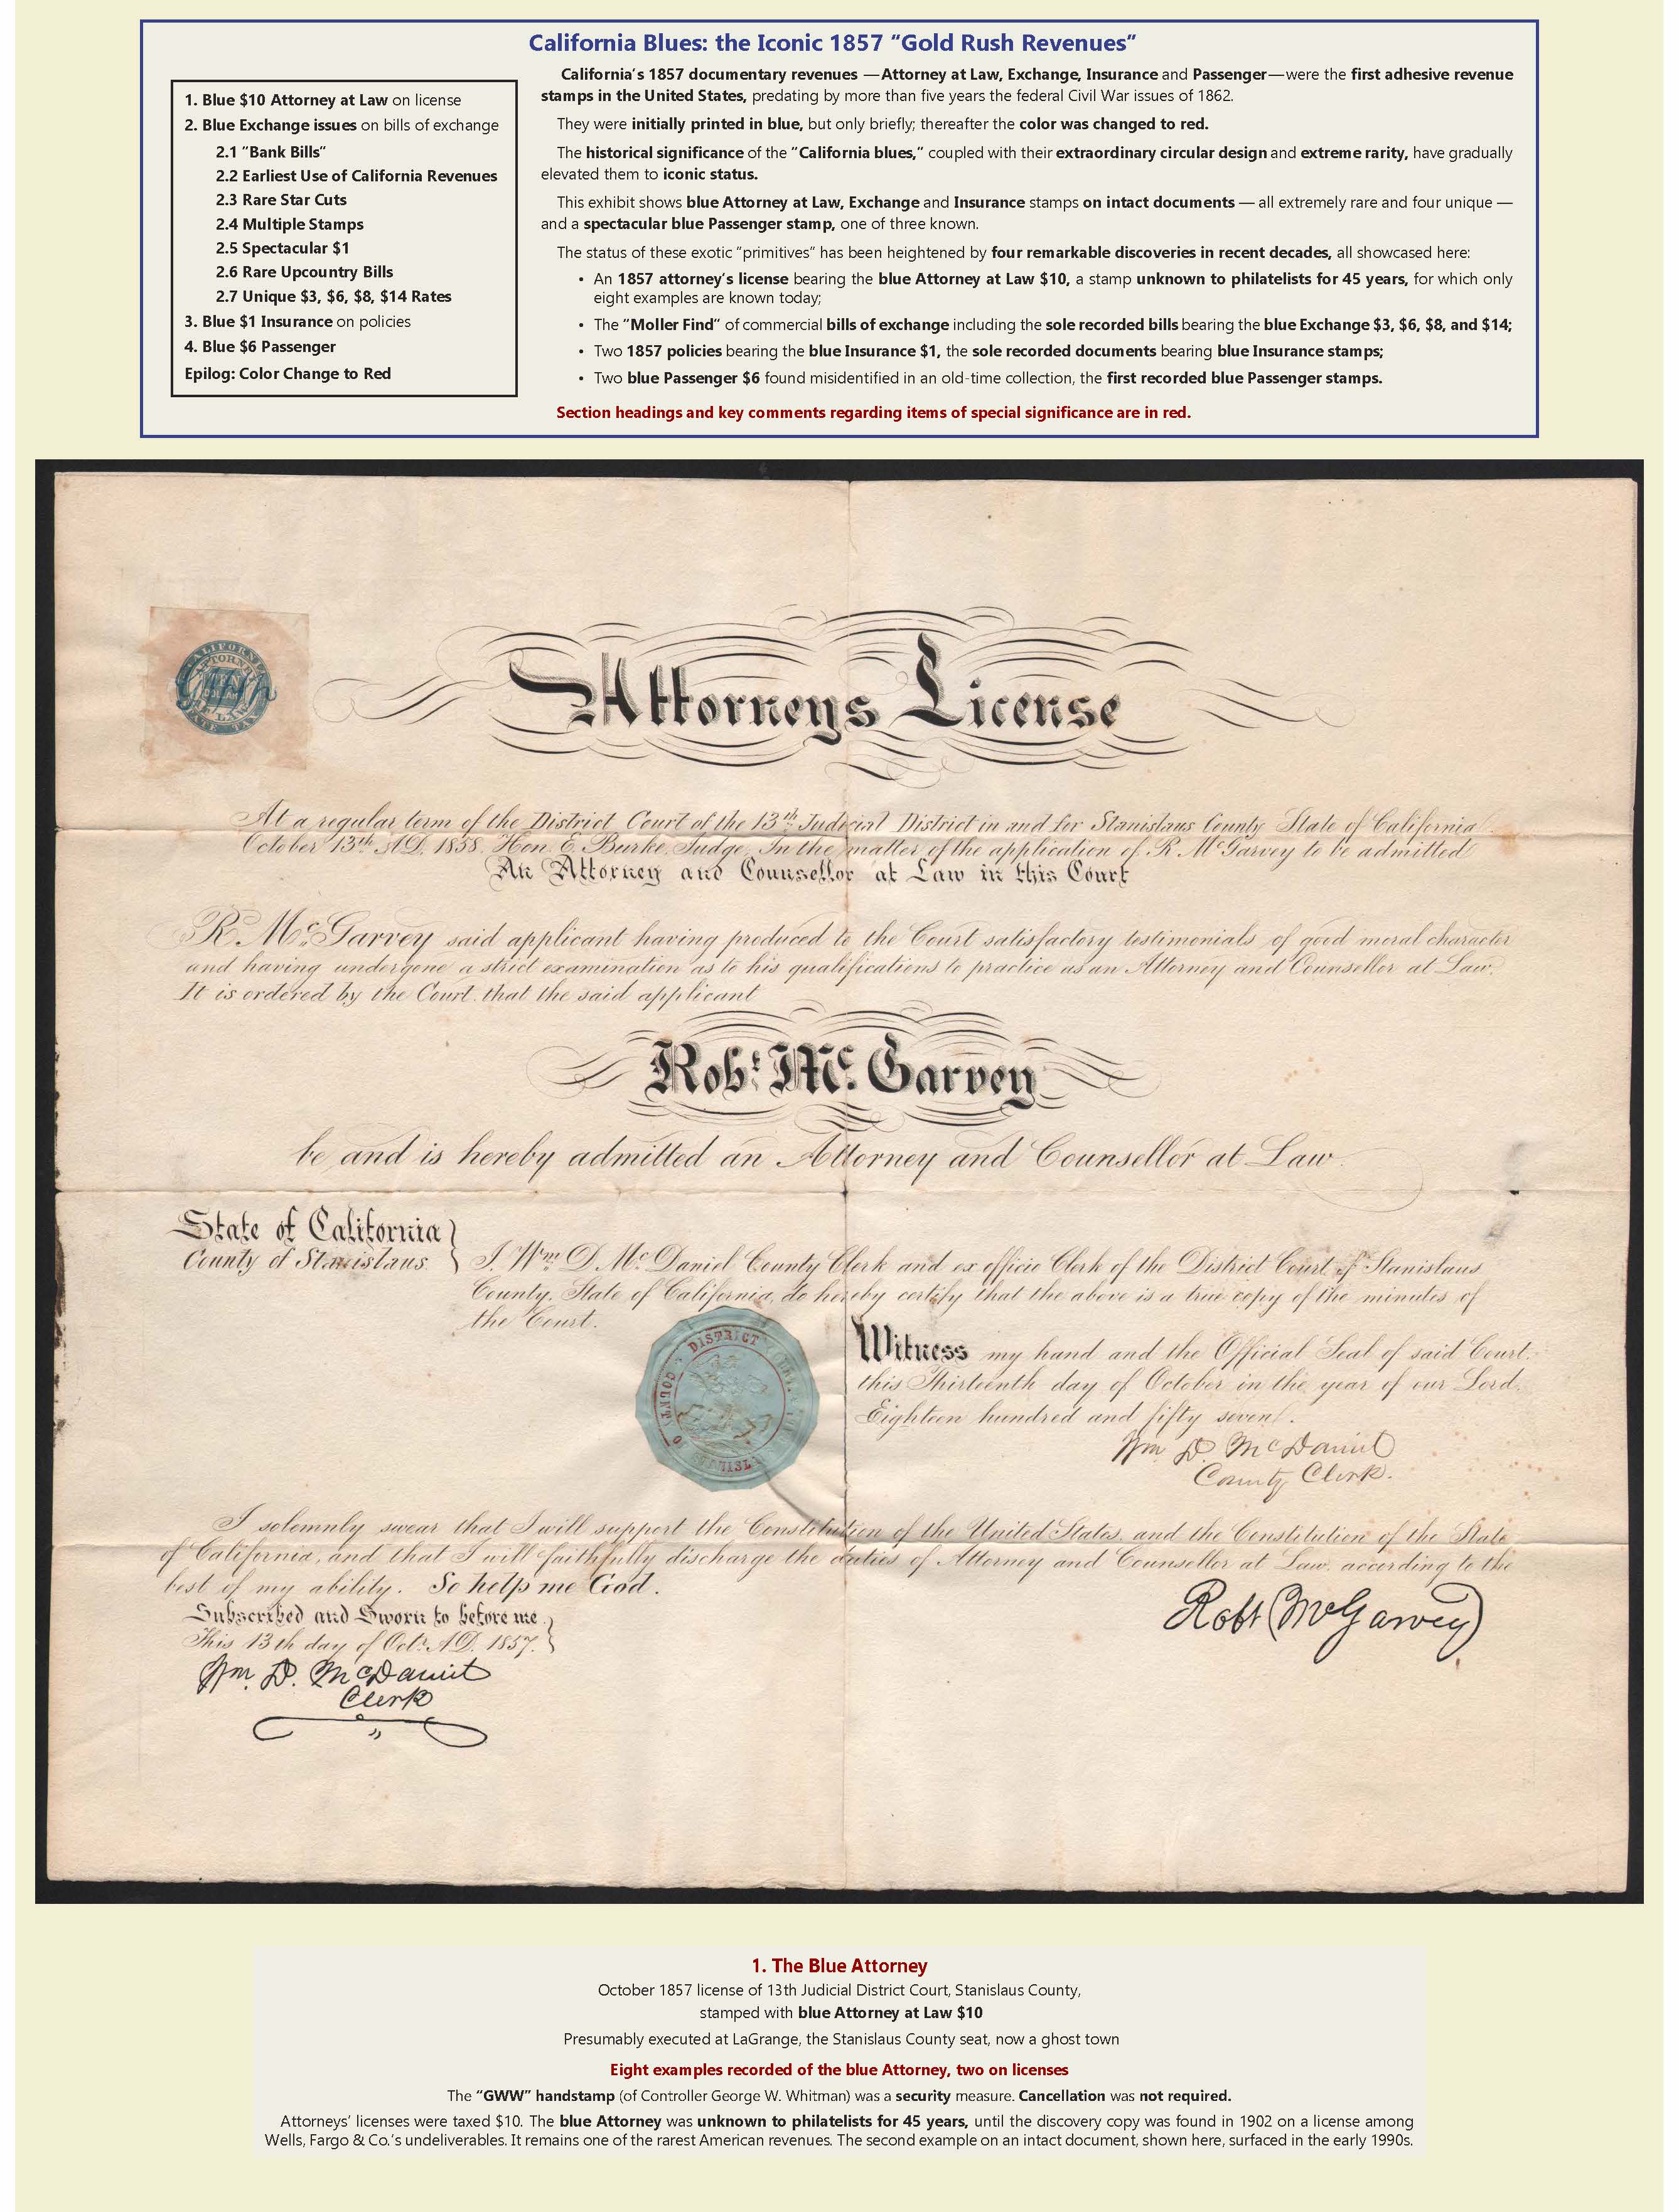 California Blues: the Iconic 1857 “Gold Rush Revenues”
1. Blue $10 Attorney at Law on license
2. Blue Exchange issues on bills of exchange
2.1 “Bank Bills”
2.2 Earliest Use of California Revenues
2.3 Rare Star Cuts
2.4 Multiple Stamps
2.5 Spectacular $1
2.6 Rare Upcountry Bills
2.7 Unique $3, $6, $8, $14 Rates
3. Blue $1 Insurance on policies
4. Blue $6 Passenger
Epilog: Color Change to Red
California’s 1857 documentary revenues —Attorney at Law, Exchange, Insurance and Passenger—were the first adhesive revenue
stamps in the United States, predating by more than five years the federal Civil War issues of 1862.
They were initially printed in blue, but only briefly; thereafter the color was changed to red.
The historical significance of the “California blues,” coupled with their extraordinary circular design and extreme rarity, have gradually
elevated them to iconic status.
This exhibit shows blue Attorney at Law, Exchange and Insurance stamps on intact documents — all extremely rare and four unique —
and a spectacular blue Passenger stamp, one of three known.
The status of these exotic “primitives” has been heightened by four remarkable discoveries in recent decades, all showcased here:
• An 1857 attorney’s license bearing the blue Attorney at Law $10, a stamp unknown to philatelists for 45 years, for which only
eight examples are known today;
• The “Moller Find” of commercial bills of exchange including the sole recorded bills bearing the blue Exchange $3, $6, $8, and $14;
• Two 1857 policies bearing the blue Insurance $1, the sole recorded documents bearing blue Insurance stamps;
• Two blue Passenger $6 found misidentified in an old-time collection, the first recorded blue Passenger stamps.
Section headings and key comments regarding items of special significance are in red.
CALIFORNIA
ATTORNEY
TEN
AT LAW
Attorneys License
At a regular term of the District Court of the 13th Judicial District in and for Stanislaus County State of California
October 13th A.D. 1858. Hon. E. Burke Judge. In the matter of the application of R. McGarvey to be admitted
An Attorney and Counsellor at Law in this Court
R. McGarvey said applicant having produced to the Court satisfactory testimonials of good moral character
and having undergone a strict examination as to his qualifications to practice as an Attorney and Counsellor at Law.
It is ordered by the Court that the said applicant
Robt. Mc. Garvey
be and is hereby admitted an Attorney and Counsellor at Law.
State of California
County of Stanislaus
I. Wm. D. McDaniel County Clerk and ex officio Clerk of the District Court of Stanislaus
County. State of California, do hereby certify that the above is a true copy of the minutes of
the Court.
DISTRICT
COUNTY
Witness my hand and the Official Seal of said Court.
this Thirteenth day of October in the year of our Lord.
Eighteen hundred and fifty seven.
Wm D. McDaniel
County Clerk.
I solemnly swear that I will support the Constitution of the United States, and the Constitution of the State
of California, and that I will faithfully discharge the duties of Attorney and Counsellor at Law, according to the
best of my ability. So help me God.
Subscribed and Sworn to before me
This 13th day of Octr. A.D. 1857.
Robt McGarvey
Wm. D. McDaniel
Clerk
1. The Blue Attorney
October 1857 license of 13th Judicial District Court, Stanislaus County,
stamped with blue Attorney at Law $10
Presumably executed at LaGrange, the Stanislaus County seat, now a ghost town
Eight examples recorded of the blue Attorney, two on licenses
The “GWW” handstamp (of Controller George W. Whitman) was a security measure. Cancellation was not required.
Attorneys’ licenses were taxed $10. The blue Attorney was unknown to philatelists for 45 years, until the discovery copy was found in 1902 on a license among
Wells, Fargo & Co.’s undeliverables. It remains one of the rarest American revenues. The second example on an intact document, shown here, surfaced in the early 1990s.